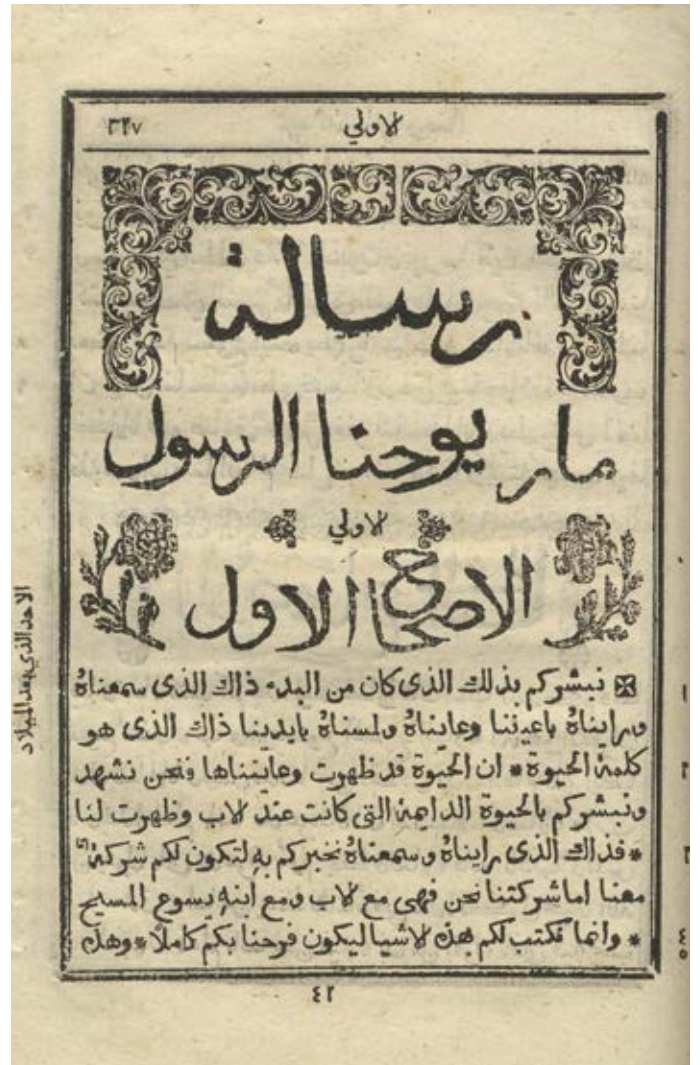 الاولي ٣٢٧
رسالة
مار يوحنا الرسول
الاولي
الاصحاح الاول
الاحد الذي بعد الميلاد
نبشركم بذلك الذى كان من البدء ذاك الذى سمعناهُ ١
ورايناهُ باعيننا وعايناهُ ولمسناهُ بايدينا ذاك الذى هو
كلمة الحيوة * ان الحيوة قد ظهرت وعايتناها فنحن نشهد ٢
ونبشركم بالحيوة الدايمة التى كانت عند الاب وظهرت لنا
* فذاك الذى رايناهُ وسمعناهُ نخبركم بهِ لتكون لكم شركة ٣
معنا اما شركتنا نحن فهى مع الاب ومع ابنهِ يسوع المسيح
* وانما نكتب لكم هذه الاشيا ليكون فرحنا بكم كاملًا * وهذه ٤ ٥
٤٢